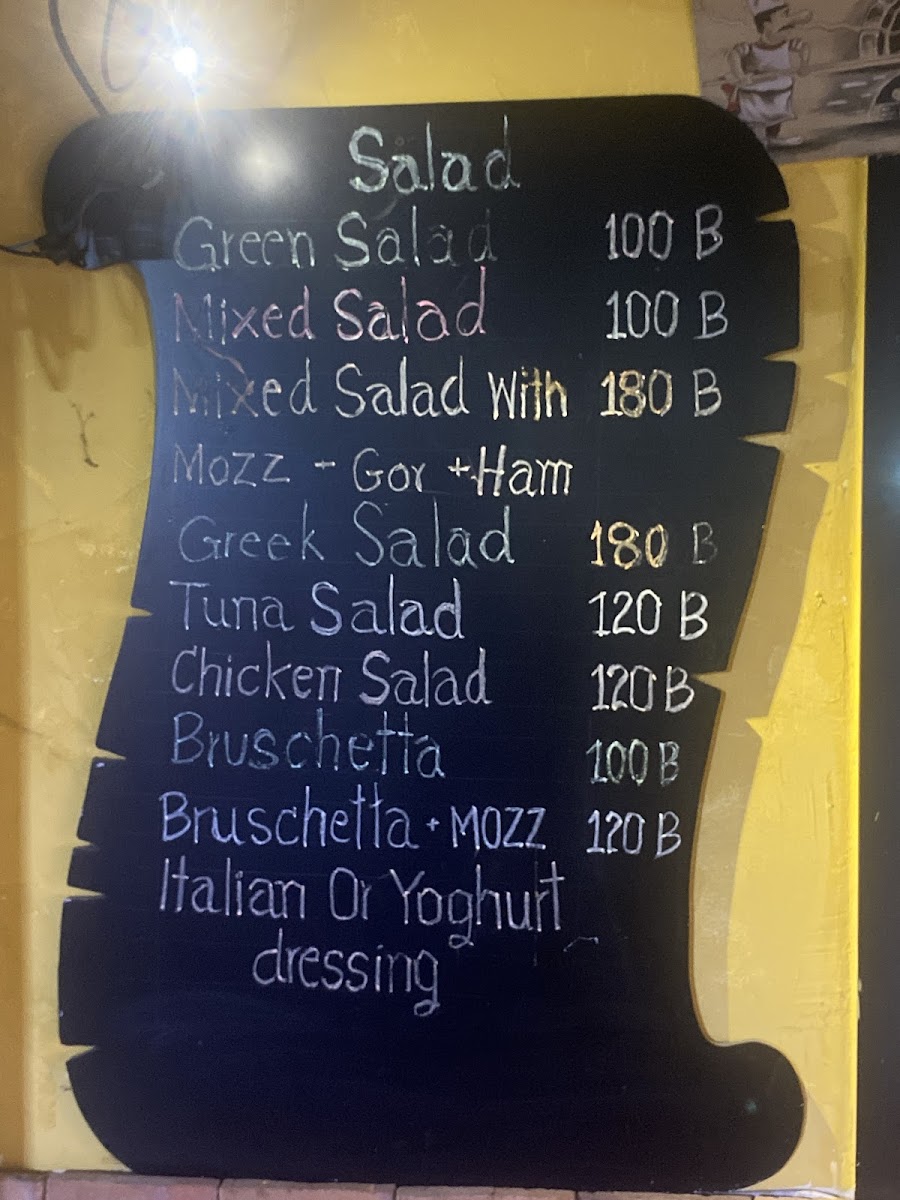 Salad
Green Salad 100 B
Mixed Salad 100 B
Mixed Salad With 180 B
Mozz - Gor + Ham
Greek Salad 180 B
Tuna Salad 120 B
Chicken Salad 120 B
Bruschetta 100 B
Bruschetta + MOZZ 120 B
Italian Or Yoghurt
dressing